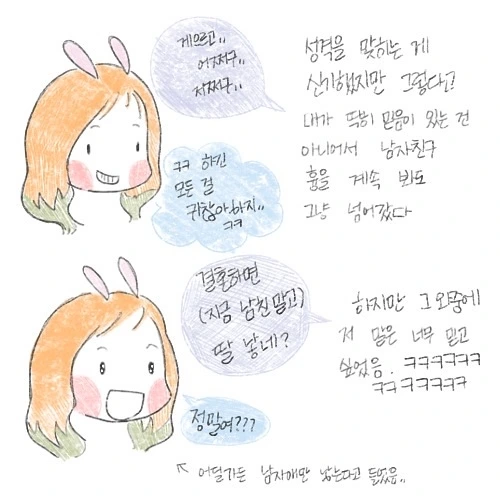 게으르고..
어쩌구..
저쩌구..
성격을 맞히는 게
신기했지만 그렇다고
내가 딱히 믿음이 있는 건
아니어서 남자친구
흉을 계속 봐도
그냥 넘어갔다
ㅋㅋ 하긴
모든 걸
귀찮아하지..
ㅋㅋ
결혼하면
(지금 남친 말고)
딸 낳네?
하지만 그 와중에
저 말은 너무 믿고
싶었음. ㅋㅋㅋㅋㅋㅋ
ㅋㅋㅋㅋㅋㅋ
정말여???
어딜가든 남자애만 낳는다고 들었음..